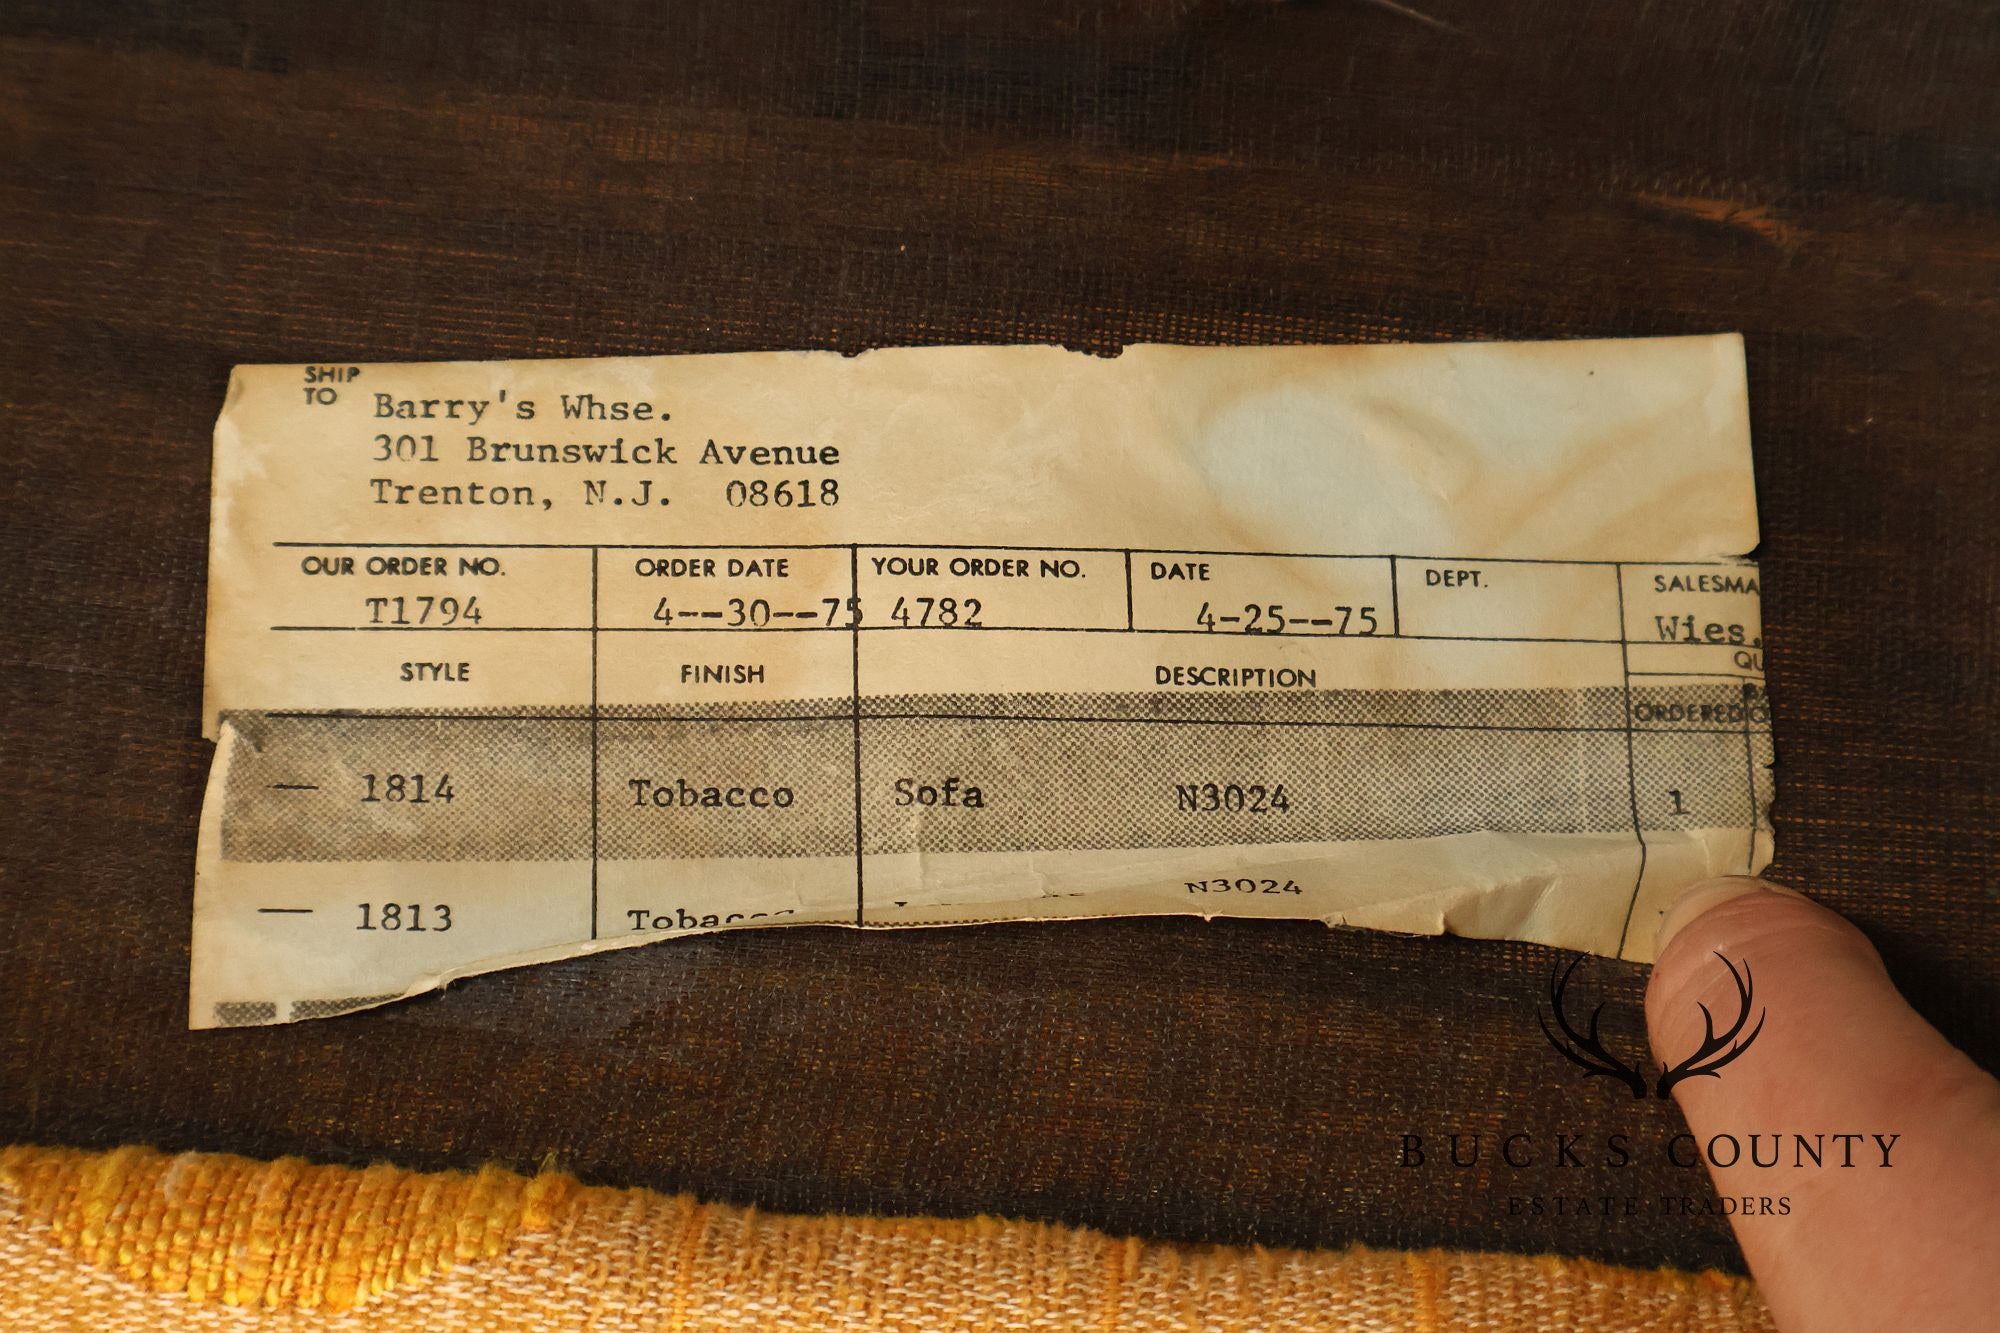 SHIP
TO
Barry's Whse.
301 Brunswick Avenue
Trenton, N.J. 08618
OUR ORDER NO. ORDER DATE YOUR ORDER NO. DATE DEPT. SALESMA
T1794 4--30--75 4782 4-25--75 Wies.
STYLE FINISH DESCRIPTION QU
ORDERED
— 1814 Tobacco Sofa N3024 1
— 1813 Tobacco N3024
BUCKS COUNTY
ESTATE TRADERS